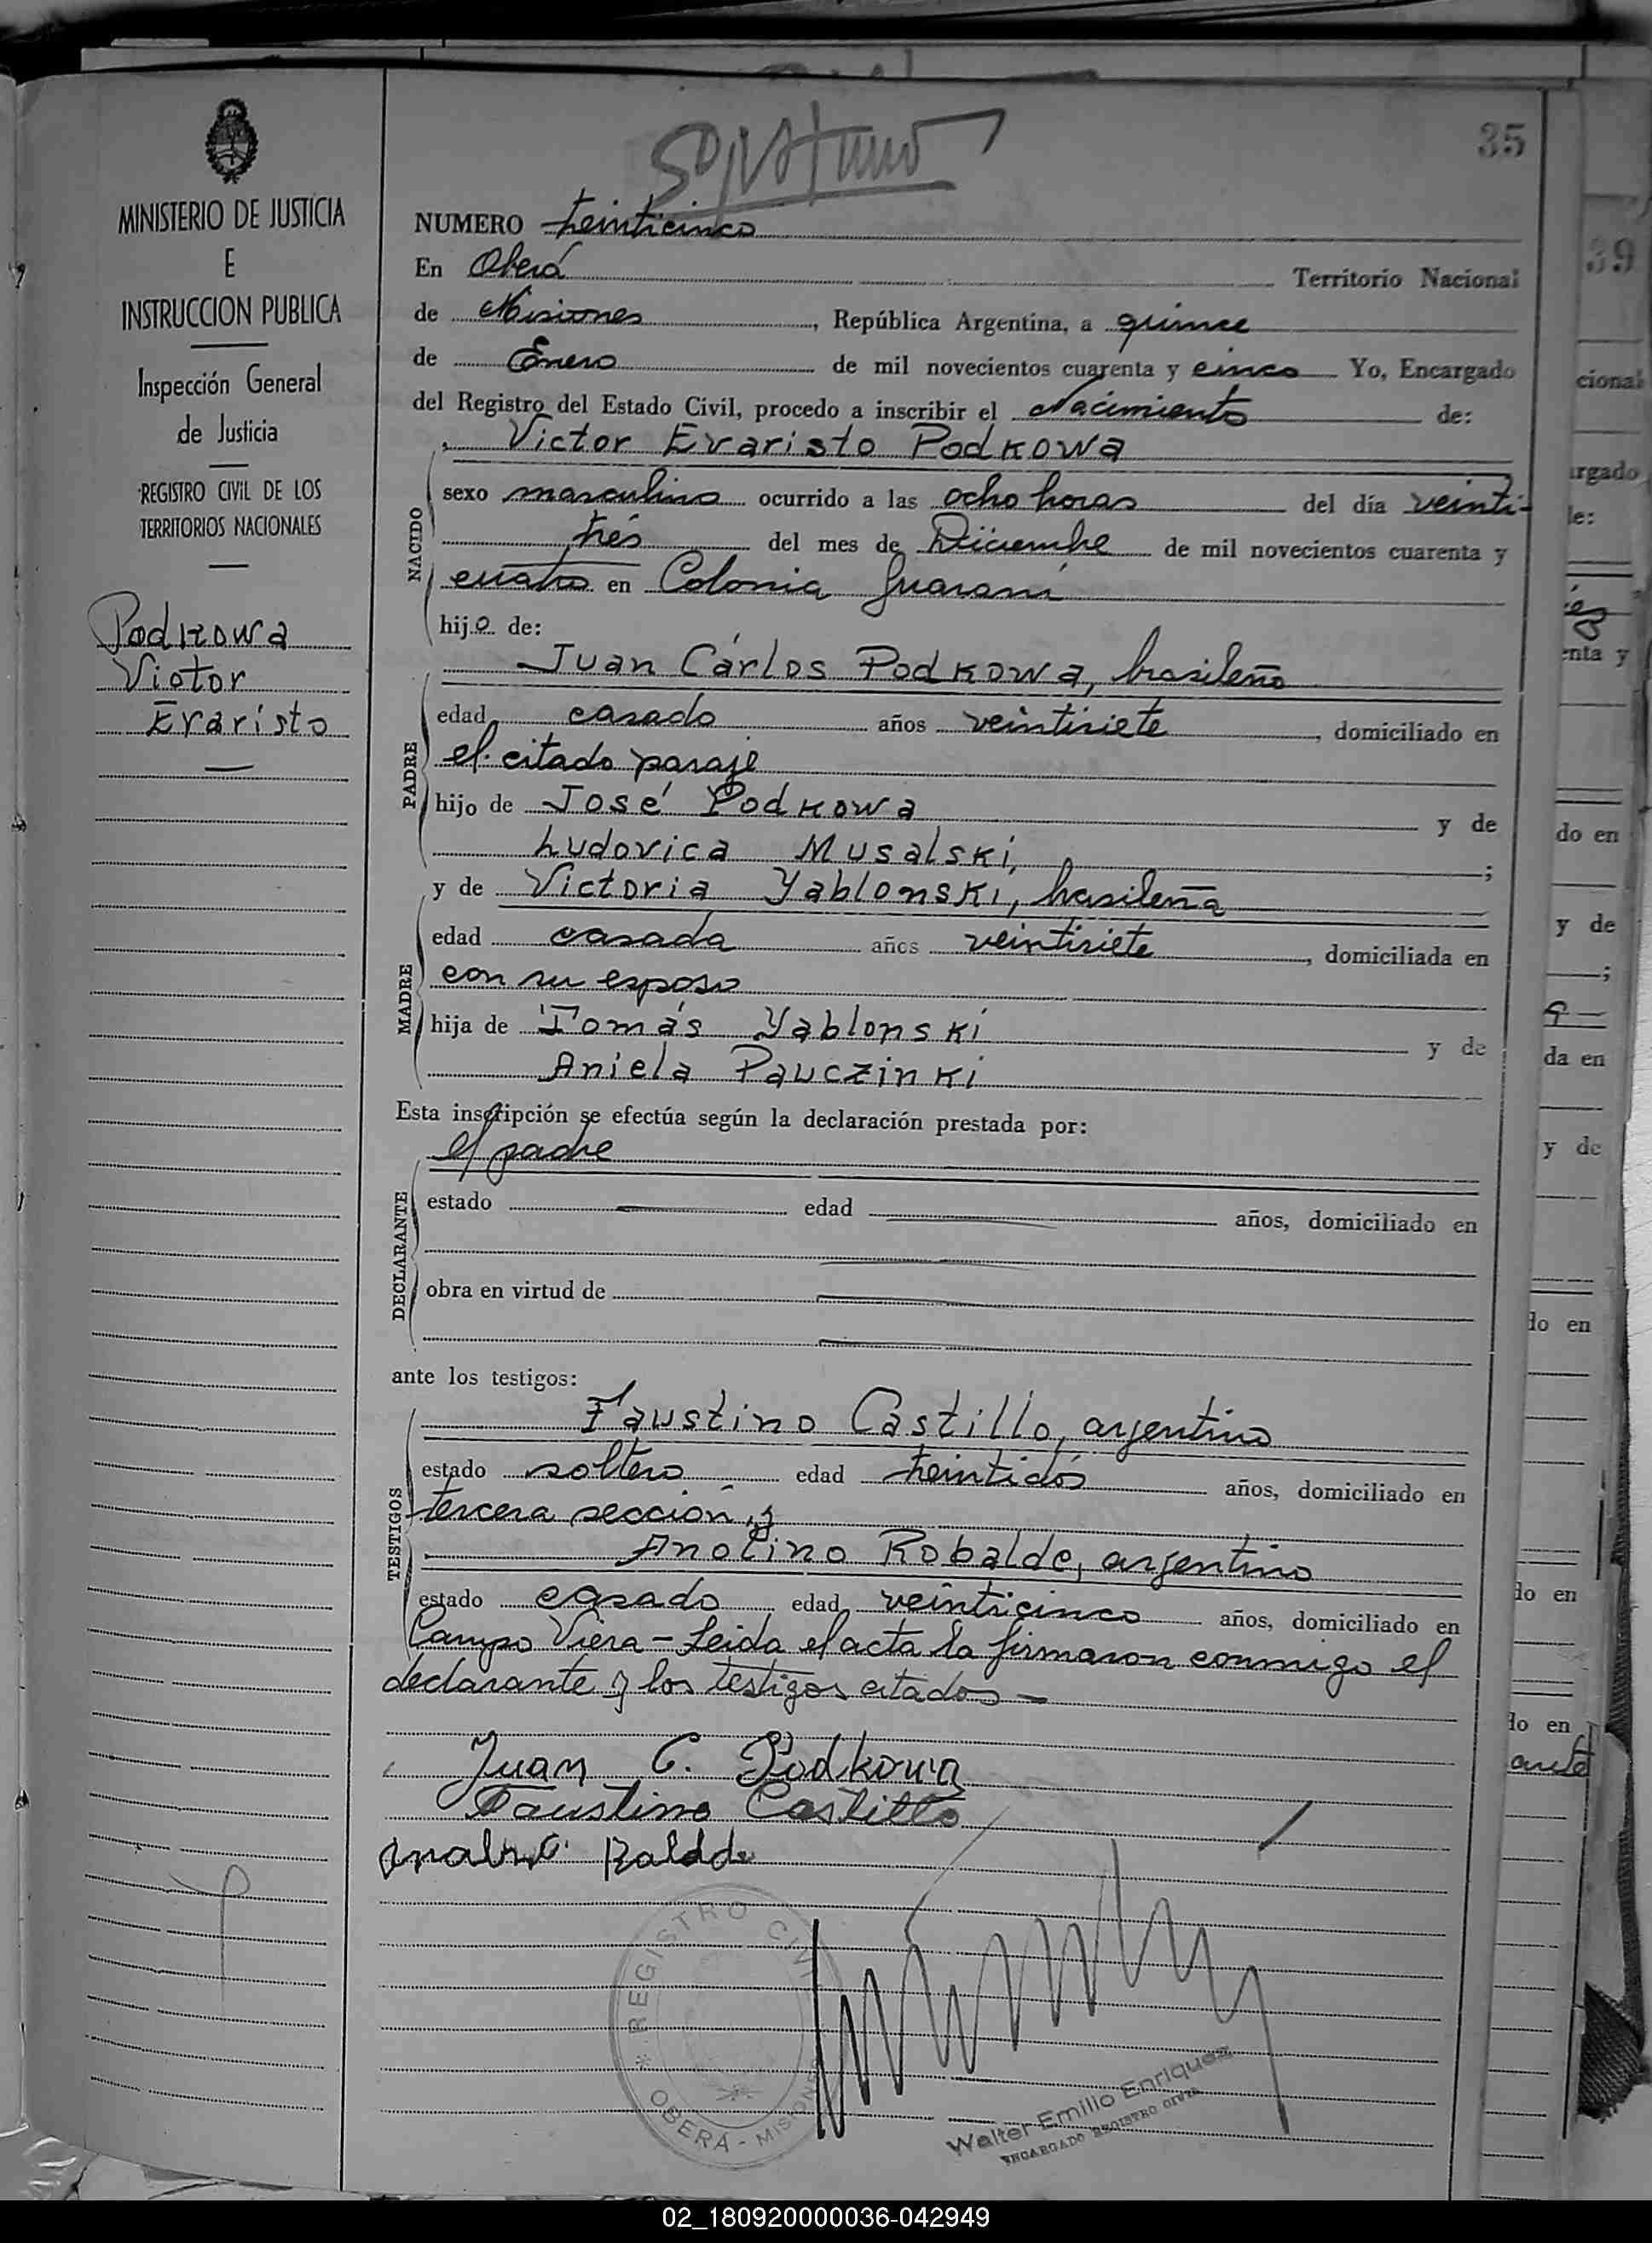 35
MINISTERIO DE JUSTICIA
E
INSTRUCCION PUBLICA
Inspección General
de Justicia
REGISTRO CIVIL DE LOS
TERRITORIOS NACIONALES
Podkowa
Victor
Evaristo
NUMERO treinticinco
En Oberá Territorio Nacional
de Misiones, República Argentina, a quince
de Enero de mil novecientos cuarenta y cinco Yo, Encargado
del Registro del Estado Civil, procedo a inscribir el Nacimiento de:
Victor Evaristo Podkowa
NACIDO
sexo masculino ocurrido a las ocho horas del día veinti-
trés del mes de Diciembre de mil novecientos cuarenta y
cuatro en Colonia Guaraní
hijo de:
Juan Cárlos Podkowa, brasileño
PADRE
edad casado años veintisiete, domiciliado en
el citado paraje
hijo de José Podkowa y de
Ludovica Musalski, ;
y de Victoria Yablonski, brasileña
MADRE
edad casada años veintisiete, domiciliada en
con su esposo
hija de Tomás Yablonski y de
Aniela Pauczinki
Esta inscripción se efectúa según la declaración prestada por:
el padre
DECLARANTE
estado edad años, domiciliado en
obra en virtud de
ante los testigos:
TESTIGOS
Faustino Castillo, argentino
estado soltero edad treintidós años, domiciliado en
tercera sección, y
Anolino Robalde, argentino
estado casado edad veinticinco años, domiciliado en
Campo Viera - Leida el acta la firmaron conmigo el
declarante y los testigos citados -
Juan C. Podkowa
Faustino Castillo
REGISTRO CIVIL
OBERÁ - MISIONES
Walter Emilio Enriquez
ENCARGADO REGISTRO CIVIL
39
cional
argado
de:
enta y
do en
y de
;
da en
y de
do en
do en
do en
02_180920000036-042949